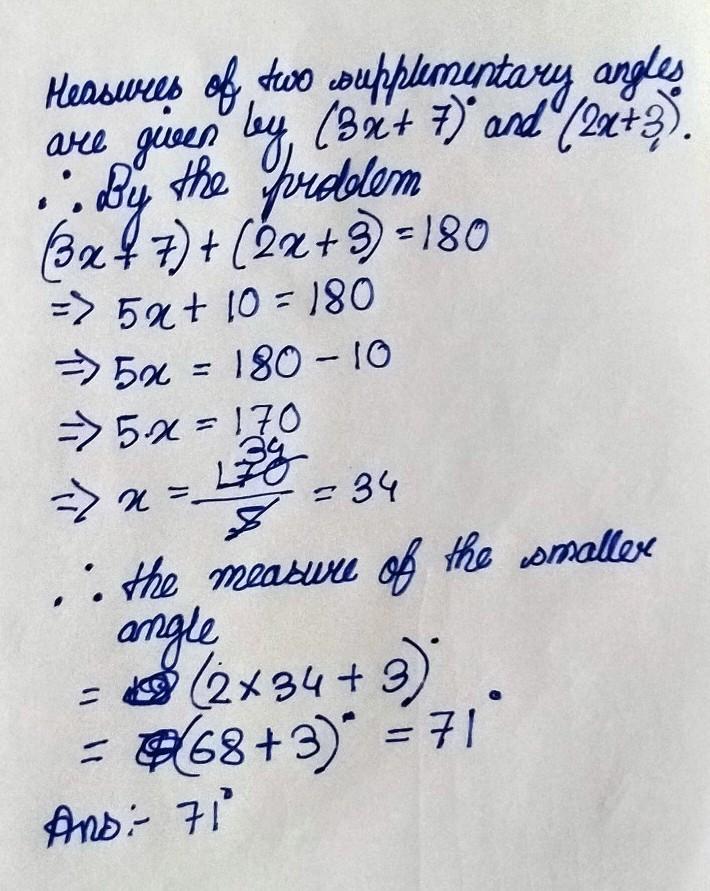 Measures of two supplementary angles
are given by (3x + 7)° and (2x+3)°.
∴ By the problem
(3x + 7) + (2x + 3) = 180
=> 5x + 10 = 180
=> 5x = 180 - 10
=> 5x = 170
34
=> x = 170/5 = 34
∴ the measure of the smaller
angle
= (2×34 + 3)°
= (68 + 3)° = 71°
Ans:- 71°